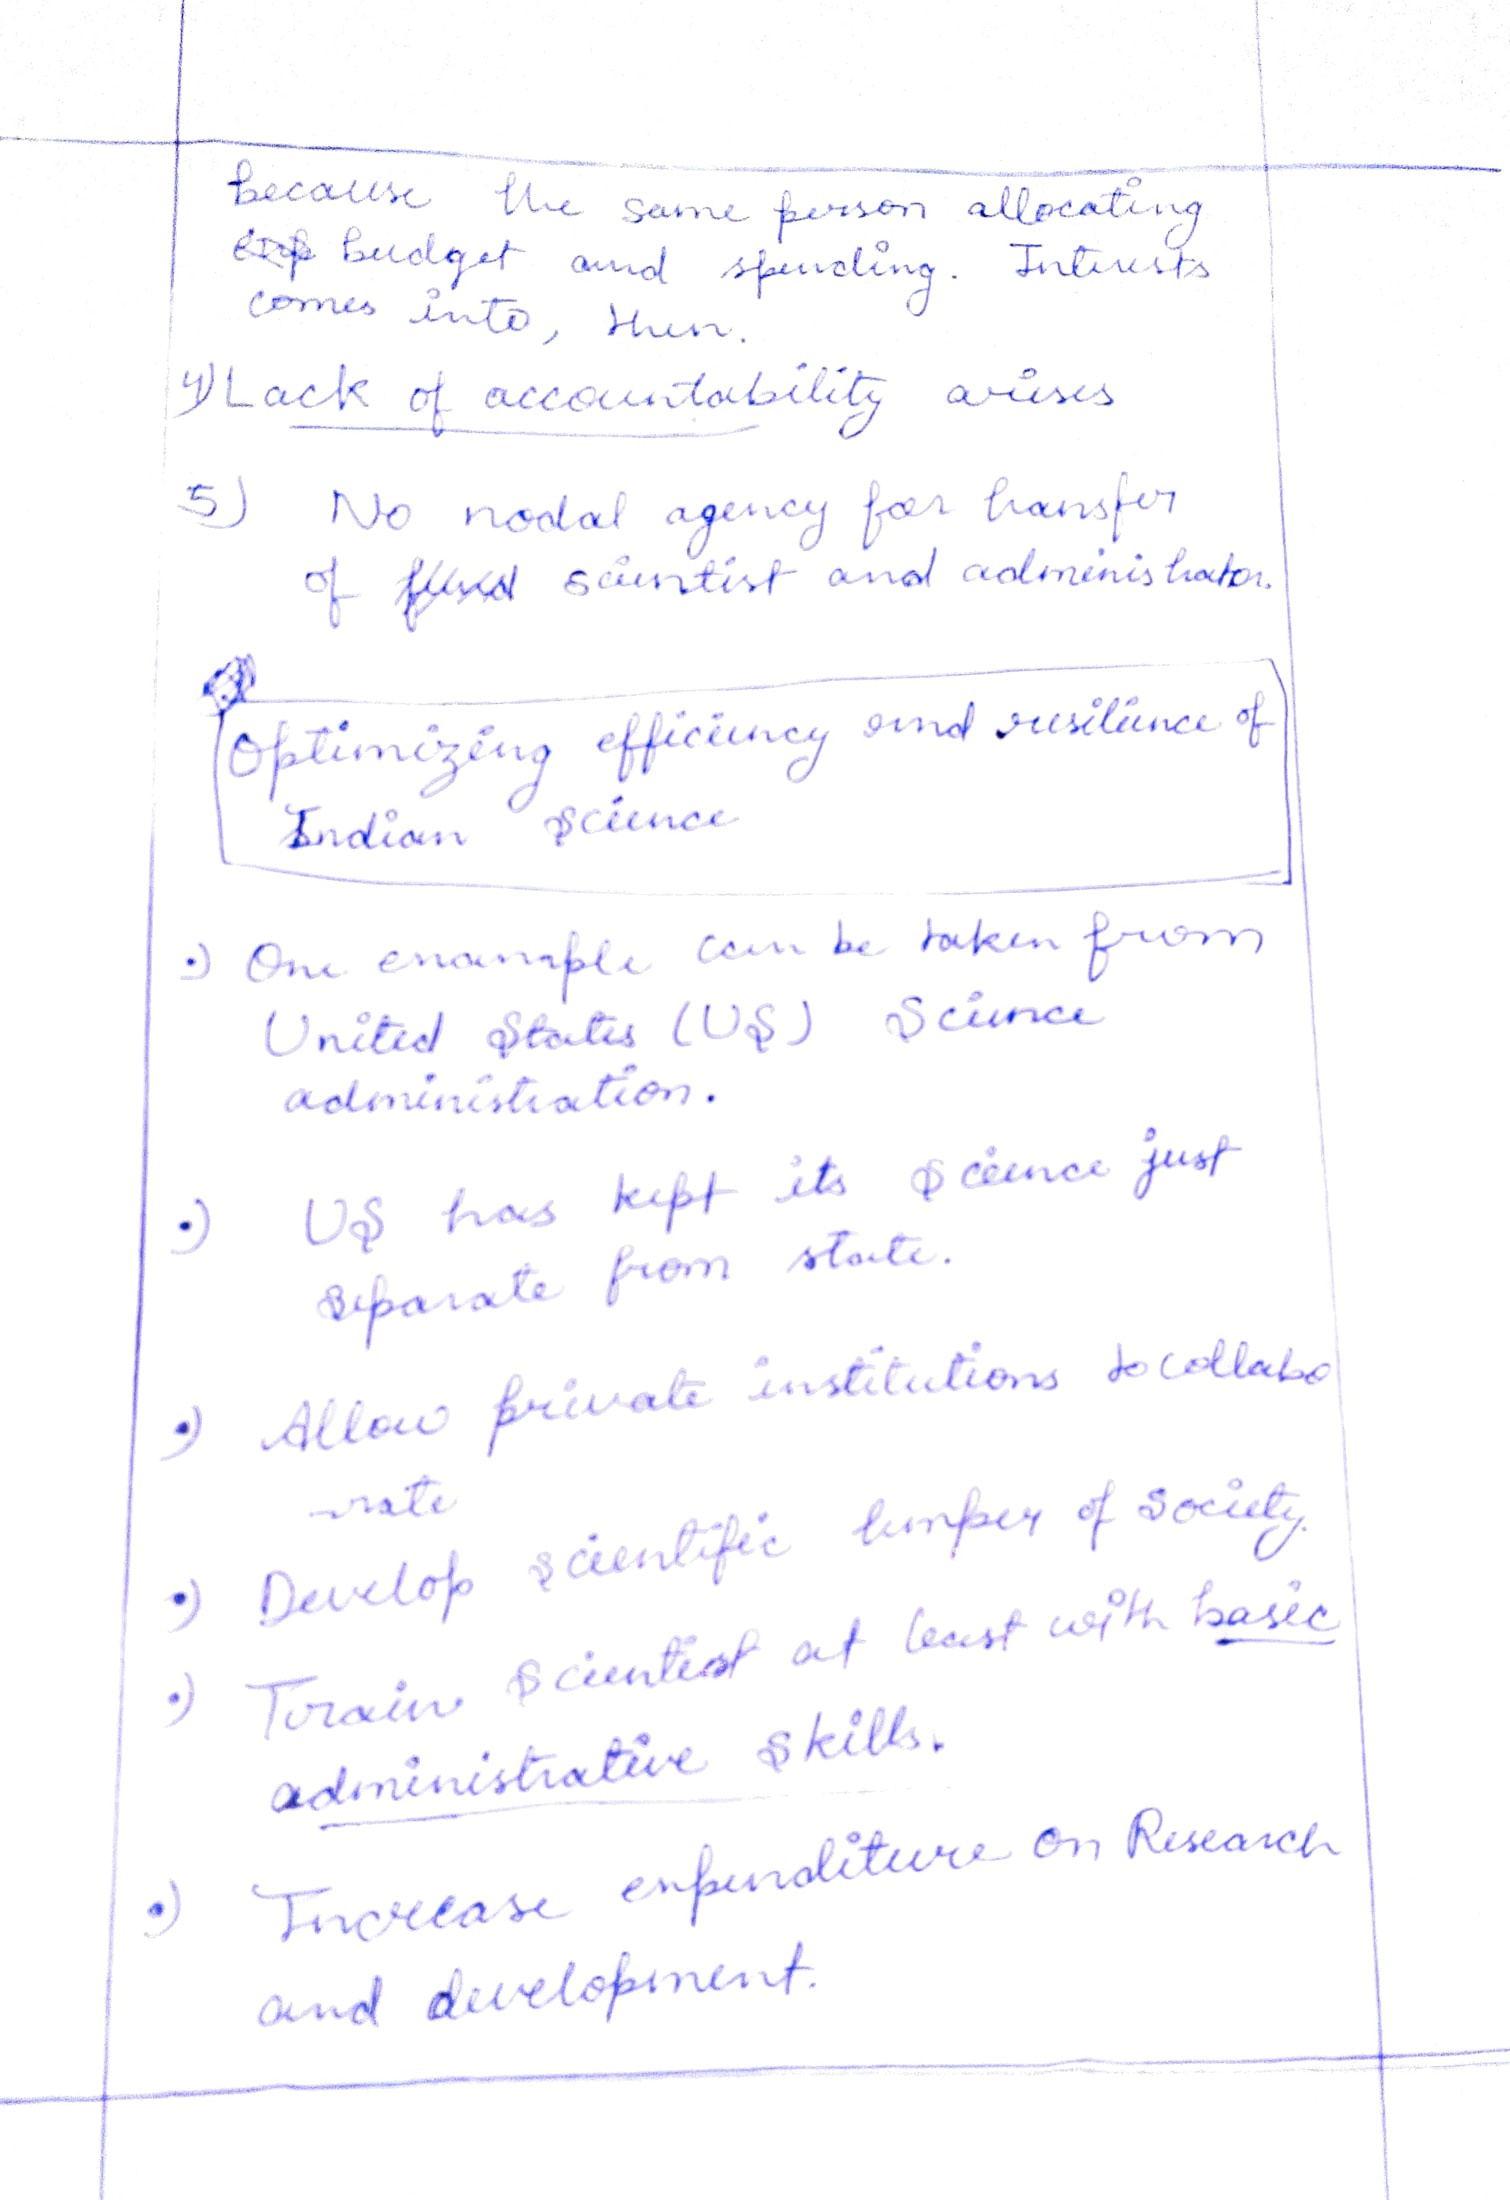 because the same person allocating
budget and spending. Interests
comes into, then.
4) Lack of accountability arises
5) No nodal agency for transfer
of scientist and administrator.
Optimizing efficiency and resilience of
Indian Science
•) One example can be taken from
United States (US) Science
administration.
•) US has kept its Science just
separate from state.
•) Allow private institutions to collabo
-rate
•) Develop scientific temper of society.
•) Train Scientist at least with basic
administrative skills.
•) Increase expenditure on Research
and development.